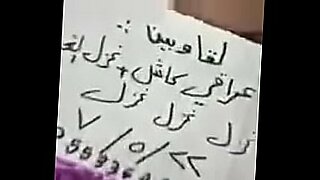 لغاوبينا :
عراقي كاش + نزل
نزل نزل نزل
٧ / ٥ / ٢٢